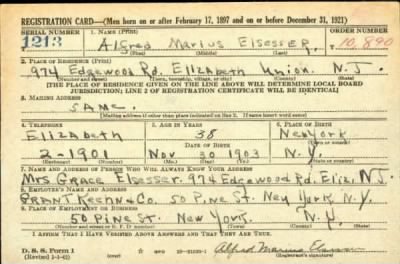 REGISTRATION CARD—(Men born on or after February 17, 1897 and on or before December 31, 1921)
SERIAL NUMBER 1. NAME (Print) ORDER NUMBER
1213 Alfred Marius Elsesser 10,890
2. PLACE OF RESIDENCE (Print)
974 Edgewood Rd. Elizabeth Union. N.J.
(Number and street) (Town, township, village, or city) (County) (State)
[THE PLACE OF RESIDENCE GIVEN ON THE LINE ABOVE WILL DETERMINE LOCAL BOARD
JURISDICTION; LINE 2 OF REGISTRATION CERTIFICATE WILL BE IDENTICAL]
3. MAILING ADDRESS
SAME.
[Mailing address if other than place indicated on line 2. If same insert word same]
4. TELEPHONE 5. AGE IN YEARS 6. PLACE OF BIRTH
Elizabeth 38 New York
DATE OF BIRTH (Town or county)
2-1901 Nov 30 1903 N.Y.
(Exchange) (Number) (Mo.) (Day) (Yr.) (State or country)
7. NAME AND ADDRESS OF PERSON WHO WILL ALWAYS KNOW YOUR ADDRESS
Mrs Grace Elsesser. 974 Edgewood Rd. Eliz. NJ
8. EMPLOYER'S NAME AND ADDRESS
GRANT Keehn & Co. 50 Pine St. New York N.Y.
9. PLACE OF EMPLOYMENT OR BUSINESS
50 Pine St. New York. N.Y.
(Number and street or R. F. D. number) (Town) (County) (State)
I AFFIRM THAT I HAVE VERIFIED ABOVE ANSWERS AND THAT THEY ARE TRUE.
D. S. S. Form 1
(Revised 1-1-42) (over) Alfred Marius Elsesser
(Registrant's signature)